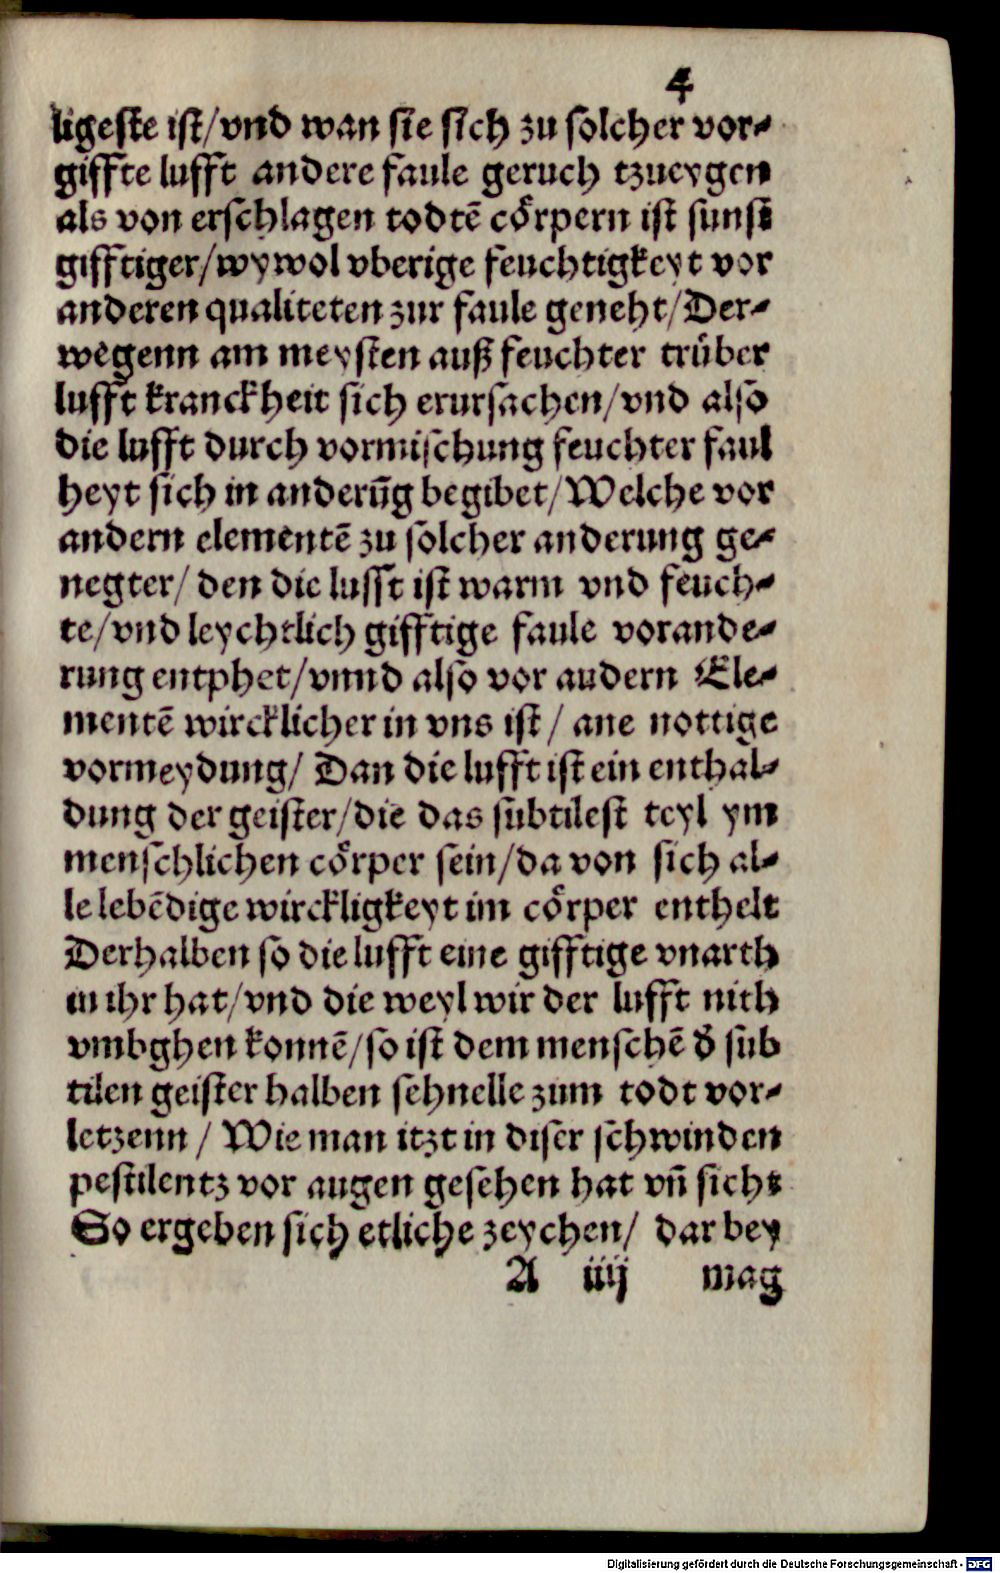 4
ligeste ist/vnd wan sie sich zu solcher vor-
giffte lufft andere faule geruch tzueygen
als von erschlagen todtē cörpern ist sunst
gifftiger/wywol vberige feuchtigkeyt vor
anderen qualiteten zur faule geneht/Der-
wegenn am meysten auß feuchter trüber
lufft kranckheit sich erursachen/vnd also
die lufft durch vormischung feuchter faul
heyt sich in anderūg begibet/Welche vor
andern elementē zu solcher anderung ge-
negter/ den die lufft ist warm vnd feuch-
te/vnd leychtlich gifftige faule vorande-
rung entphet/vnnd also vor andern Ele-
mentē wircklicher in vns ist/ ane nottige
vormeydung/ Dan die lufft ist ein enthal-
dung der geister/die das subtilest teyl ym
menschlichen cörper sein/da von sich al-
le lebēdige wirckligkeyt im cörper enthelt
Derhalben so die lufft eine gifftige vnarth
in ihr hat/vnd die weyl wir der lufft nith
vmbghen konnē/so ist dem menschē d̄ sub
tilen geister halben sehnelle zum todt vor-
letzenn / Wie man itzt in diser schwinden
pestilentz vor augen gesehen hat vn̄ sicht
So ergeben sich etliche zeychen/ dar bey
A iiij mag
Digitalisierung gefördert durch die Deutsche Forschungsgemeinschaft - DFG